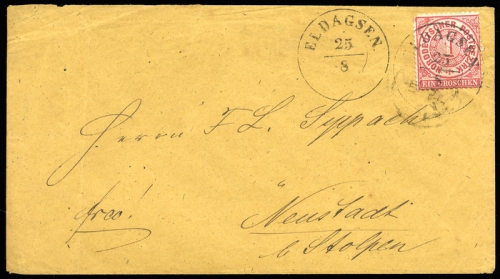 ELDAGSEN
25
8
NORDDEUTSCHER POSTBEZIRK
1
EIN GROSCHEN
DAGSEN
25
Herrn F. L. Syppach
frco!
Neustadt
b Stolpen